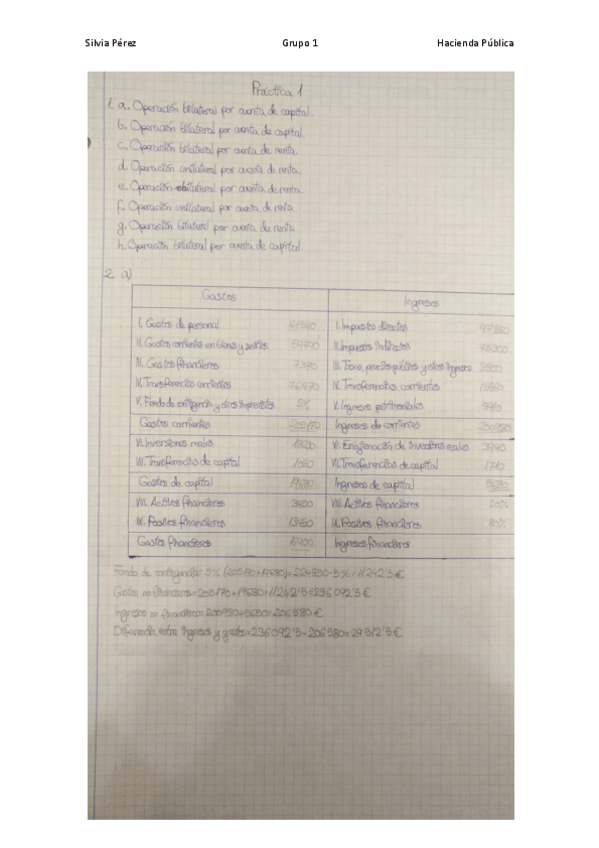 Silvia Pérez Grupo 1 Hacienda Pública
Práctica 1
1. a. Operación bilateral por cuenta de capital.
b. Operación bilateral por cuenta de capital.
c. Operación bilateral por cuenta de renta.
d. Operación unilateral por cuenta de renta.
e. Operación bilateral por cuenta de renta.
f. Operación unilateral por cuenta de renta.
g. Operación bilateral por cuenta de renta.
h. Operación bilateral por cuenta de capital.
2. a)
Gastos Ingresos
I. Gastos de personal I. Impuestos directos
II. Gastos corrientes en bienes y servicios II. Impuestos indirectos
III. Gastos financieros III. Tasas, precios públicos y otros ingresos
IV. Transferencias corrientes IV. Transferencias corrientes
V. Fondo de contingencia y otros imprevistos 5% V. Ingresos patrimoniales
Gastos corrientes 205170 Ingresos de corrientes
VI. Inversiones reales VI. Enajenación de inversiones reales
VII. Transferencias de capital VII. Transferencias de capital
Gastos de capital 19680 Ingresos de capital
VIII. Activos financieros VIII. Activos financieros 20%
IX. Pasivos financieros IX. Pasivos financieros 80%
Gastos financieros Ingresos financieros
Fondo de contingencia= 5% (205170+19680)= 224850·5%= 11242'5€
Gastos no financieros= 205170+19680+11242'5=236092'5€
Ingresos no financieros= =206580€
Diferencia entre ingresos y gastos=236092'5-206580=29512'5€